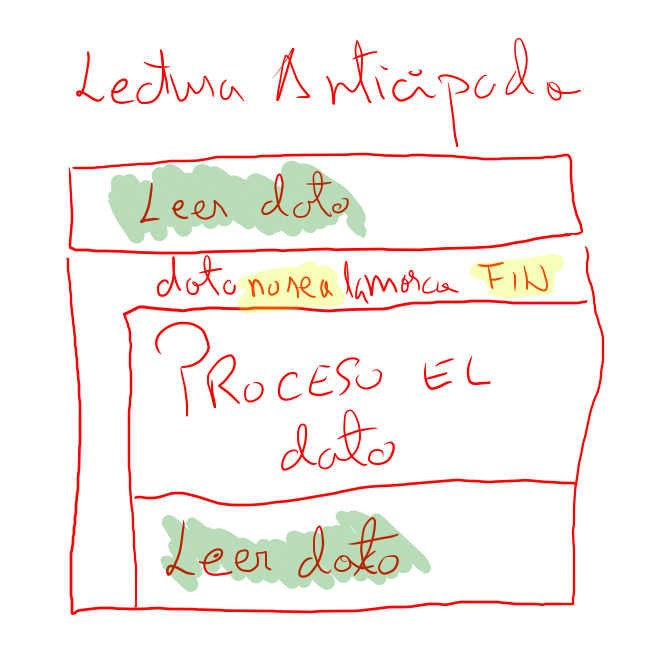 Lectura Anticipada
Leer dato
dato no sea la marca FIN
PROCESO EL
dato
Leer dato